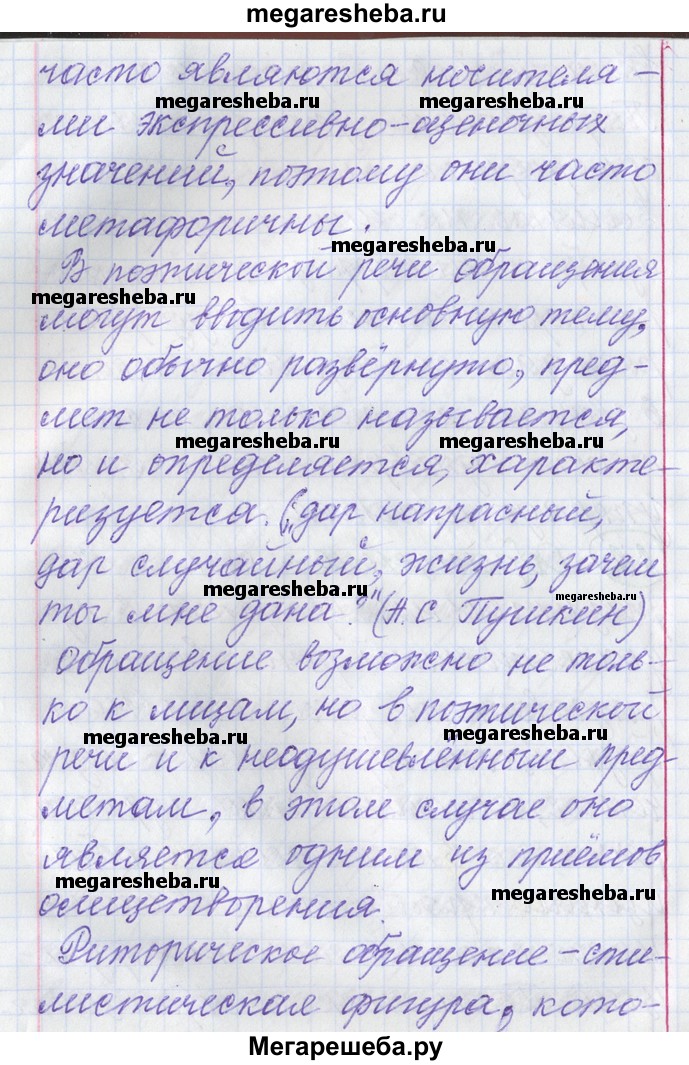 megaresheba.ru
часто являются носителя-
megaresheba.ru megaresheba.ru
ми экспрессивно-оценочных
значений, поэтому они часто
метафоричны.
megaresheba.ru
В поэтической речи обращения
megaresheba.ru
могут вводить основную тему,
оно обычно развёрнуто, пред-
мет не только называется,
megaresheba.ru megaresheba.ru
но и определяется, характе-
ризуется. („дар напрасный,
дар случайный, жизнь, зачем
megaresheba.ru megaresheba.ru
ты мне дана?" (А.С Пушкин)
Обращение возможно не толь-
ко к лицам, но в поэтической
megaresheba.ru megaresheba.ru
речи и к неодушевлённым пред-
метам, в этом случае оно
является одним из приёмов
megaresheba.ru megaresheba.ru
олицетворения.
Риторическое обращение – сти-
листическая фигура, кото-
Мегарешеба.ру